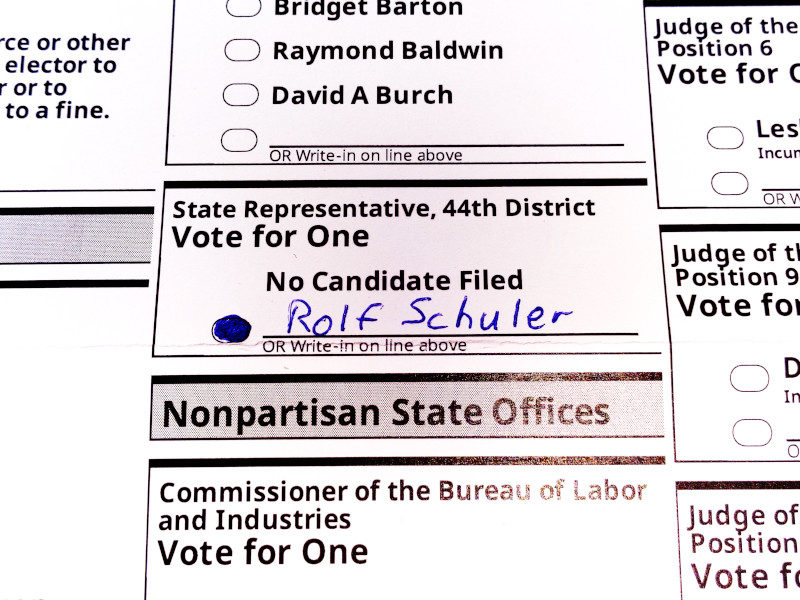 rce or other
elector to
r or to
to a fine.
Bridget Barton
Raymond Baldwin
David A Burch
OR Write-in on line above
State Representative, 44th District
Vote for One
No Candidate Filed
Rolf Schuler
OR Write-in on line above
Nonpartisan State Offices
Commissioner of the Bureau of Labor
and Industries
Vote for One
Judge of the
Position 6
Vote for O
Les
Incum
OR W
Judge of th
Position 9
Vote for
D
In
O
Judge of
Position
Vote fo